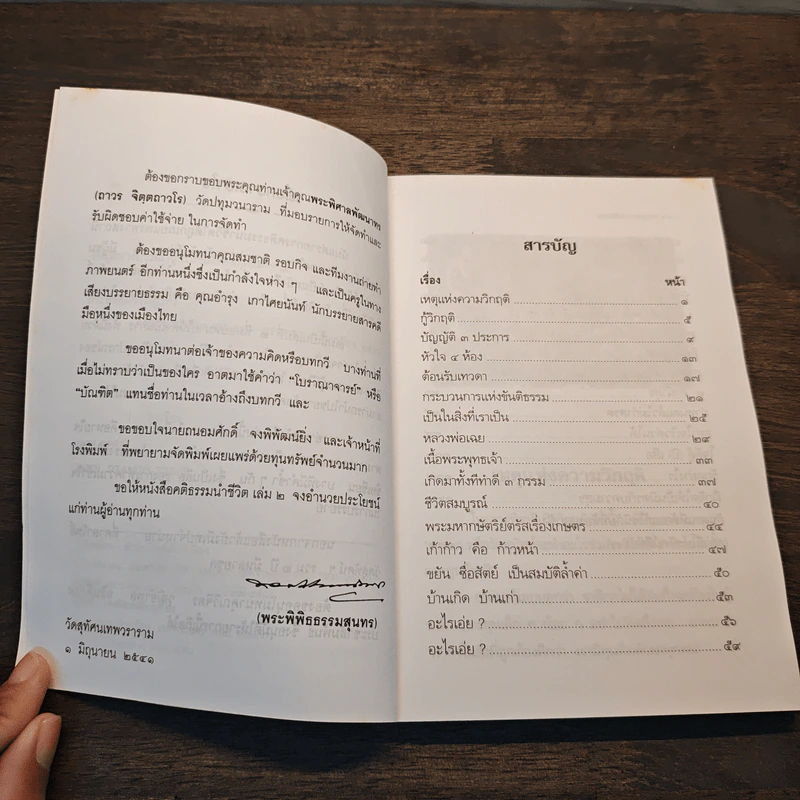 ต้องขอกราบขอบพระคุณท่านเจ้าคุณพระพิศาลพัฒนาทร
(ถาวร จิตฺตถาวโร) วัดปทุมวนาราม ที่มอบรายการให้จัดทำและ
รับผิดชอบค่าใช้จ่าย ในการจัดทำ
ต้องขออนุโมทนาคุณสมชาติ รอบกิจ และทีมงานถ่ายทำ
ภาพยนตร์ อีกท่านหนึ่งซึ่งเป็นกำลังใจห่าง ๆ และเป็นครูในทาง
เสียงบรรยายธรรม คือ คุณอำรุง เกาไศยนันท์ นักบรรยายสารคดี
มือหนึ่งของเมืองไทย
ขออนุโมทนาต่อเจ้าของความคิดหรือบทกวี บางท่านที่
เมื่อไม่ทราบว่าเป็นของใคร อาตมาใช้คำว่า "โบราณาจารย์" หรือ
"บัณฑิต" แทนชื่อท่านในเวลาอ้างถึงบทกวี และ
ขอขอบใจนายถนอมศักดิ์ จงพิพัฒน์ยิ่ง และเจ้าหน้าที่
โรงพิมพ์ ที่พยายามจัดพิมพ์เผยแพร่ด้วยทุนทรัพย์จำนวนมาก
ขอให้หนังสือคติธรรมนำชีวิต เล่ม ๒ จงอำนวยประโยชน์
แก่ท่านผู้อ่านทุกท่าน
(พระพิพิธธรรมสุนทร)
วัดสุทัศนเทพวราราม
๑ มิถุนายน ๒๕๔๑
สารบัญ
เรื่อง หน้า
เหตุแห่งความวิกฤติ ๑
กู้วิกฤติ ๕
บัญญัติ ๓ ประการ ๙
หัวใจ ๔ ห้อง ๑๓
ต้อนรับเทวดา ๑๗
กระบวนการแห่งขันติธรรม ๒๑
เป็นในสิ่งที่เราเป็น ๒๕
หลวงพ่อเฉย ๒๙
เนื้อพระพุทธเจ้า ๓๓
เกิดมาทั้งทีทำดี ๓ กรรม ๓๗
ชีวิตสมบูรณ์ ๔๐
พระมหากษัตริย์ตรัสเรื่องเกษตร ๔๔
เก้าก้าว คือ ก้าวหน้า ๔๗
ขยัน ซื่อสัตย์ เป็นสมบัติล้ำค่า ๕๐
บ้านเกิด บ้านเก่า ๕๓
อะไรเอ่ย ? ๕๖
อะไรเอ่ย ? ๕๙